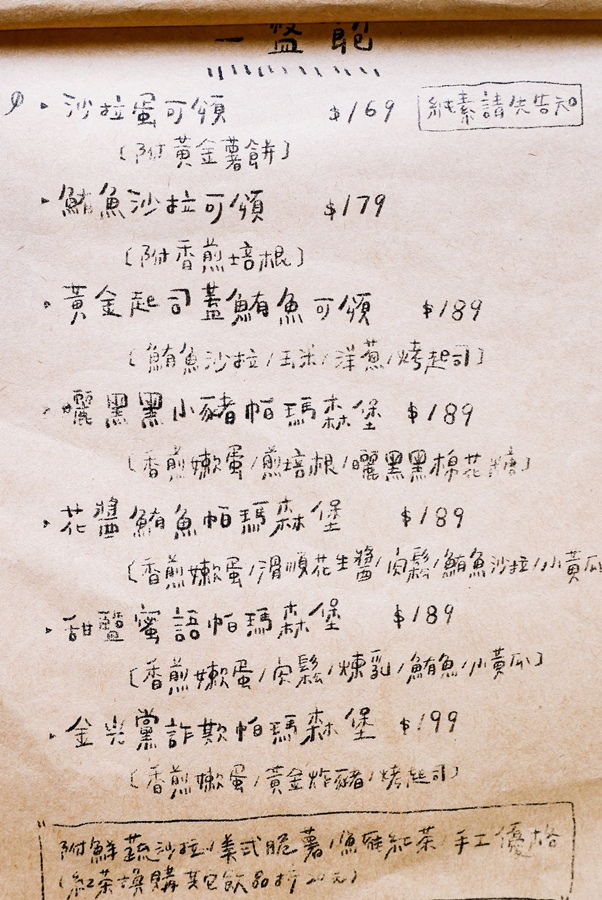 一盤飽
沙拉蛋可頌 $169 純素請先告知
(附黃金薯餅)
鮪魚沙拉可頌 $179
(附香煎培根)
黃金起司蓋鮪魚可頌 $189
(鮪魚沙拉/玉米/洋蔥/烤起司)
曬黑黑小豬帕瑪森堡 $189
(香煎嫩蛋/煎培根/曬黑黑棉花糖)
花醬鮪魚帕瑪森堡 $189
(香煎嫩蛋/滑順花生醬/肉鬆/鮪魚沙拉/小黃瓜
甜蜜語帕瑪森堡 $189
(香煎嫩蛋/肉鬆/煉乳/鮪魚/小黃瓜)
金光黨詐欺帕瑪森堡 $199
(香煎嫩蛋/黃金炸豬/烤起司)
附鮮蔬沙拉/美式脆薯/魚雁紅茶 手工優格
(紅茶換購其它飲品折 元)